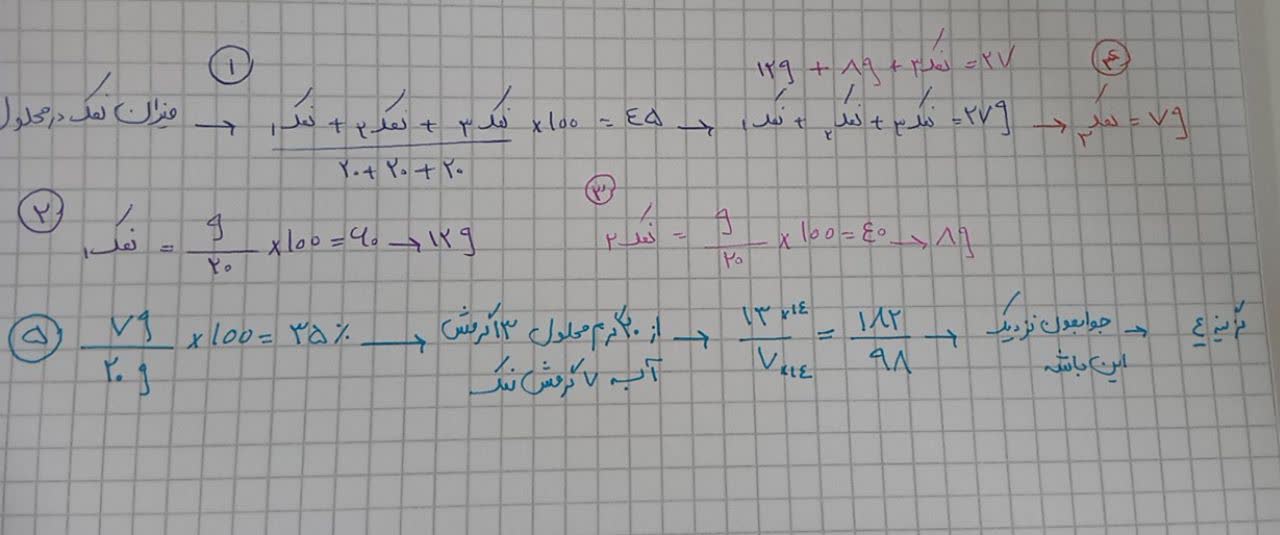 ①
۱۲g + ۸g + نمک۳ = ۲۷ ④
میزان نمک در محلول → (نمک۱ + نمک۲ + نمک۳) / (۲۰ + ۲۰ + ۲۰) × ۱۰۰ = ٤۵ → نمک۱ + نمک۲ + نمک۳ = ۲۷g → نمک۳ = ۷g
② نمک۱ = g / ۲۰ × ۱۰۰ = ۶۰ → ۱۲g
③ نمک۲ = g / ۲۰ × ۱۰۰ = ٤۰ → ۸g
⑤ ۷g / ۲۰g × ۱۰۰ = ۳۵٪ → از ۲۰ گرم محلول ۱۳ گرمش آب ۷ گرمش نمک → ۱۳×۱٤ / ۷×۱٤ = ۱۸۲ / ۹۸ → جوابمون نزدیک این باشه → گزینه ٤